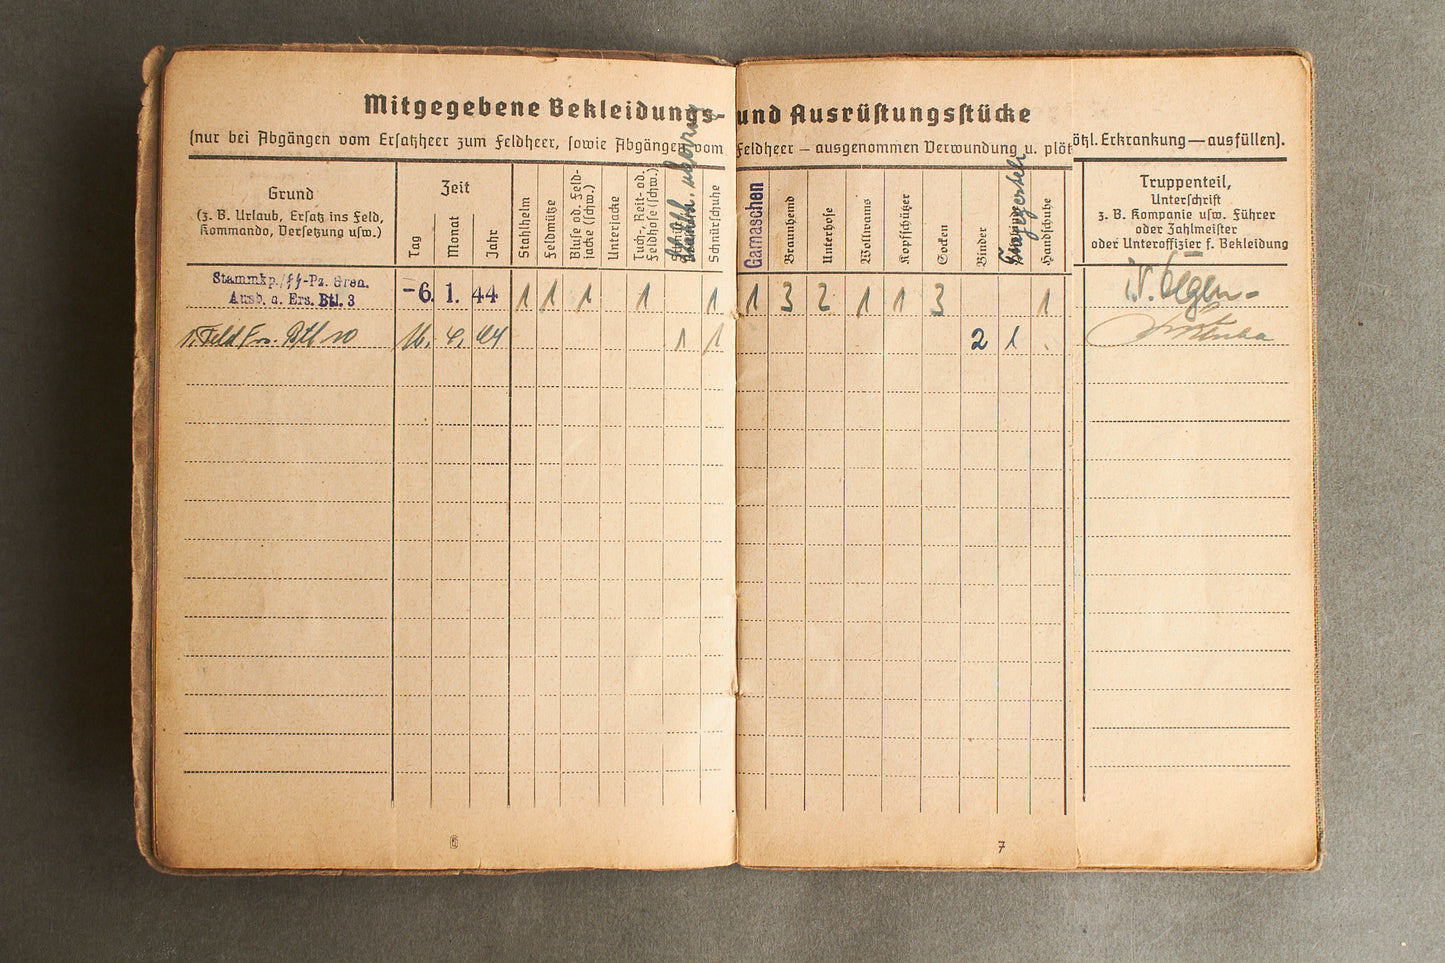 Mitgegebene Bekleidungs- und Ausrüstungsstücke
(nur bei Abgängen vom Ersatzheer zum Feldheer, sowie Abgängen vom Feldheer – ausgenommen Verwundung u. plötzl. Erkrankung — ausfüllen).
Grund
(z. B. Urlaub, Ersatz ins Feld,
Kommando, Versetzung usw.)
Zeit
Tag
Monat
Jahr
Stahlhelm
Feldmütze
Bluse od. Feld-
jacke (schw.)
Unterjacke
Tuch-, Reit- od.
Feldhose (schw.)
Schnürschuhe
Gamaschen
Braunhemd
Unterhose
Wollwams
Kopfschützer
Socken
Binder
Handschuhe
Truppenteil,
Unterschrift
z. B. Kompanie usw. Führer
oder Zahlmeister
oder Unteroffizier f. Bekleidung
Stammkp./ᛋᛋ-Pz. Gren.
Ausb. u. Ers. Btl. 3
-6. 1. 44 1 1 1 1 1 1 3 2 1 1 3 1
1. Feld Ers. Btl 10 16. 9. 44 1 1 2 1
6
7